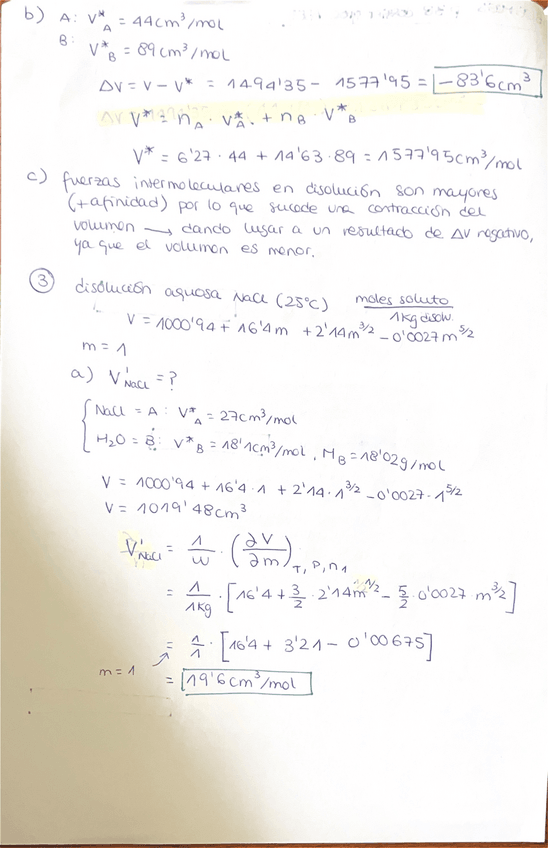 b) A: V*A = 44cm³/mol
B: V*B = 89cm³/mol
ΔV = V - V* = 1494'35 - 1577'95 = -83'6cm³
V* = nA · V*A + nB · V*B
V* = 6'27 · 44 + 14'63 · 89 = 1577'95cm³/mol
c) fuerzas intermoleculares en disolución son mayores
(+afinidad) por lo que sucede una contracción del
volumen → dando lugar a un resultado de ΔV negativo,
ya que el volumen es menor.
③ disolución aquosa NaCl (25ºC) moles soluto
1kg disolv.
V = 1000'94 + 16'4m + 2'14m^3/2 - 0'0027m^5/2
m = 1
a) V'NaCl = ?
NaCl = A: V*A = 27cm³/mol
H₂O = B: V*B = 18'1cm³/mol, MB = 18'02g/mol
V = 1000'94 + 16'4 · 1 + 2'14 · 1^3/2 - 0'0027 · 1^5/2
V = 1019'48cm³
V'NaCl = 1/w · (∂V/∂m)T, P, n1
= 1/1kg · [16'4 + 3/2 · 2'14m^1/2 - 5/2 · 0'0027 m^3/2]
= 1/1 · [16'4 + 3'21 - 0'00675]
m = 1
= 19'6cm³/mol